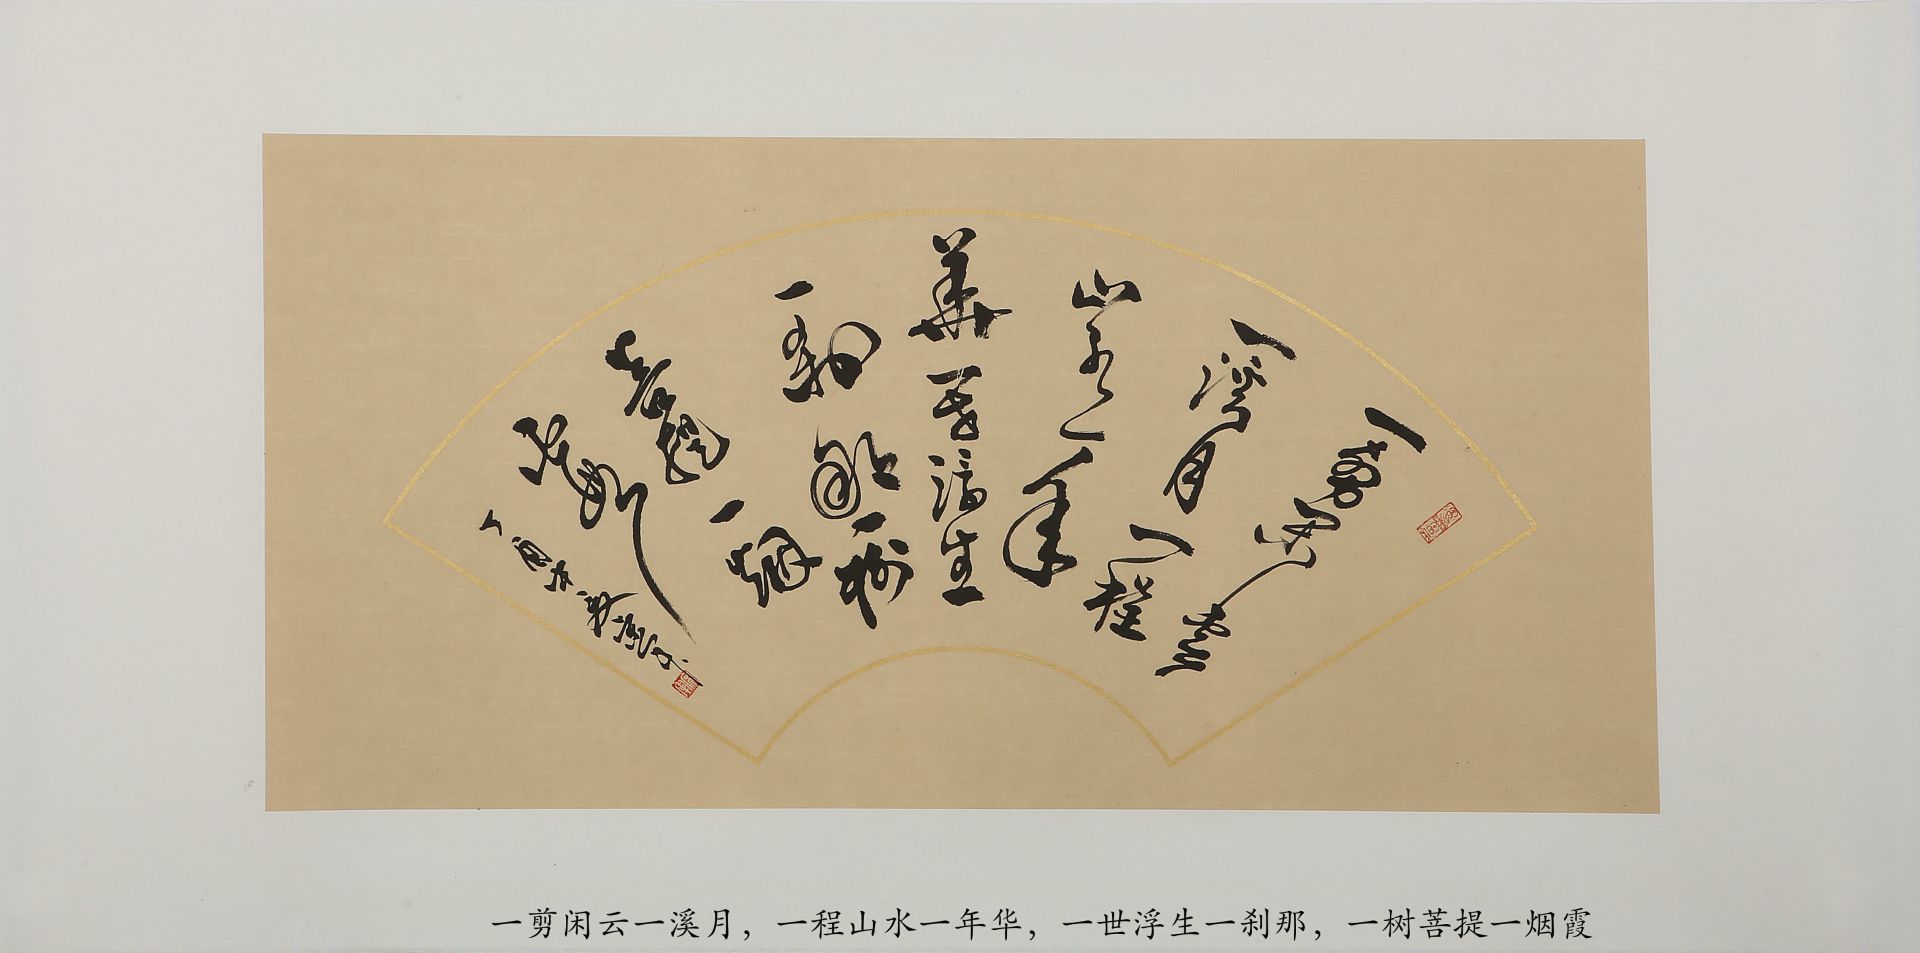 一剪闲云
一溪月一程
山水一年
華一世浮生
一刹那一树
菩提一烟
霞
丁酉年
一剪闲云一溪月，一程山水一年华，一世浮生一刹那，一树菩提一烟霞